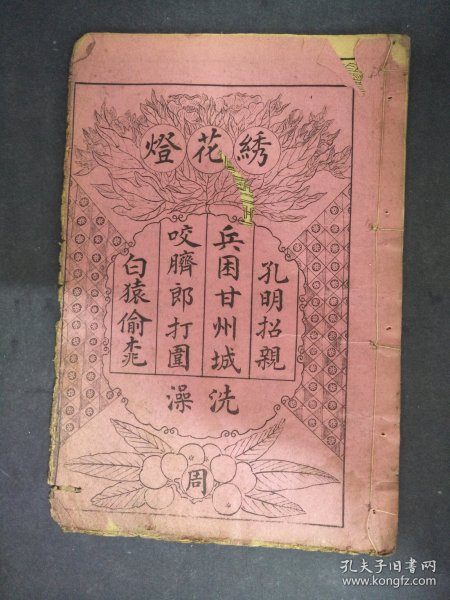 綉花燈
孔明招親
兵困甘州城
咬臍郎打圍
白猿偷桃
洗澡
周
孔夫子旧书网
www.kongfz.com